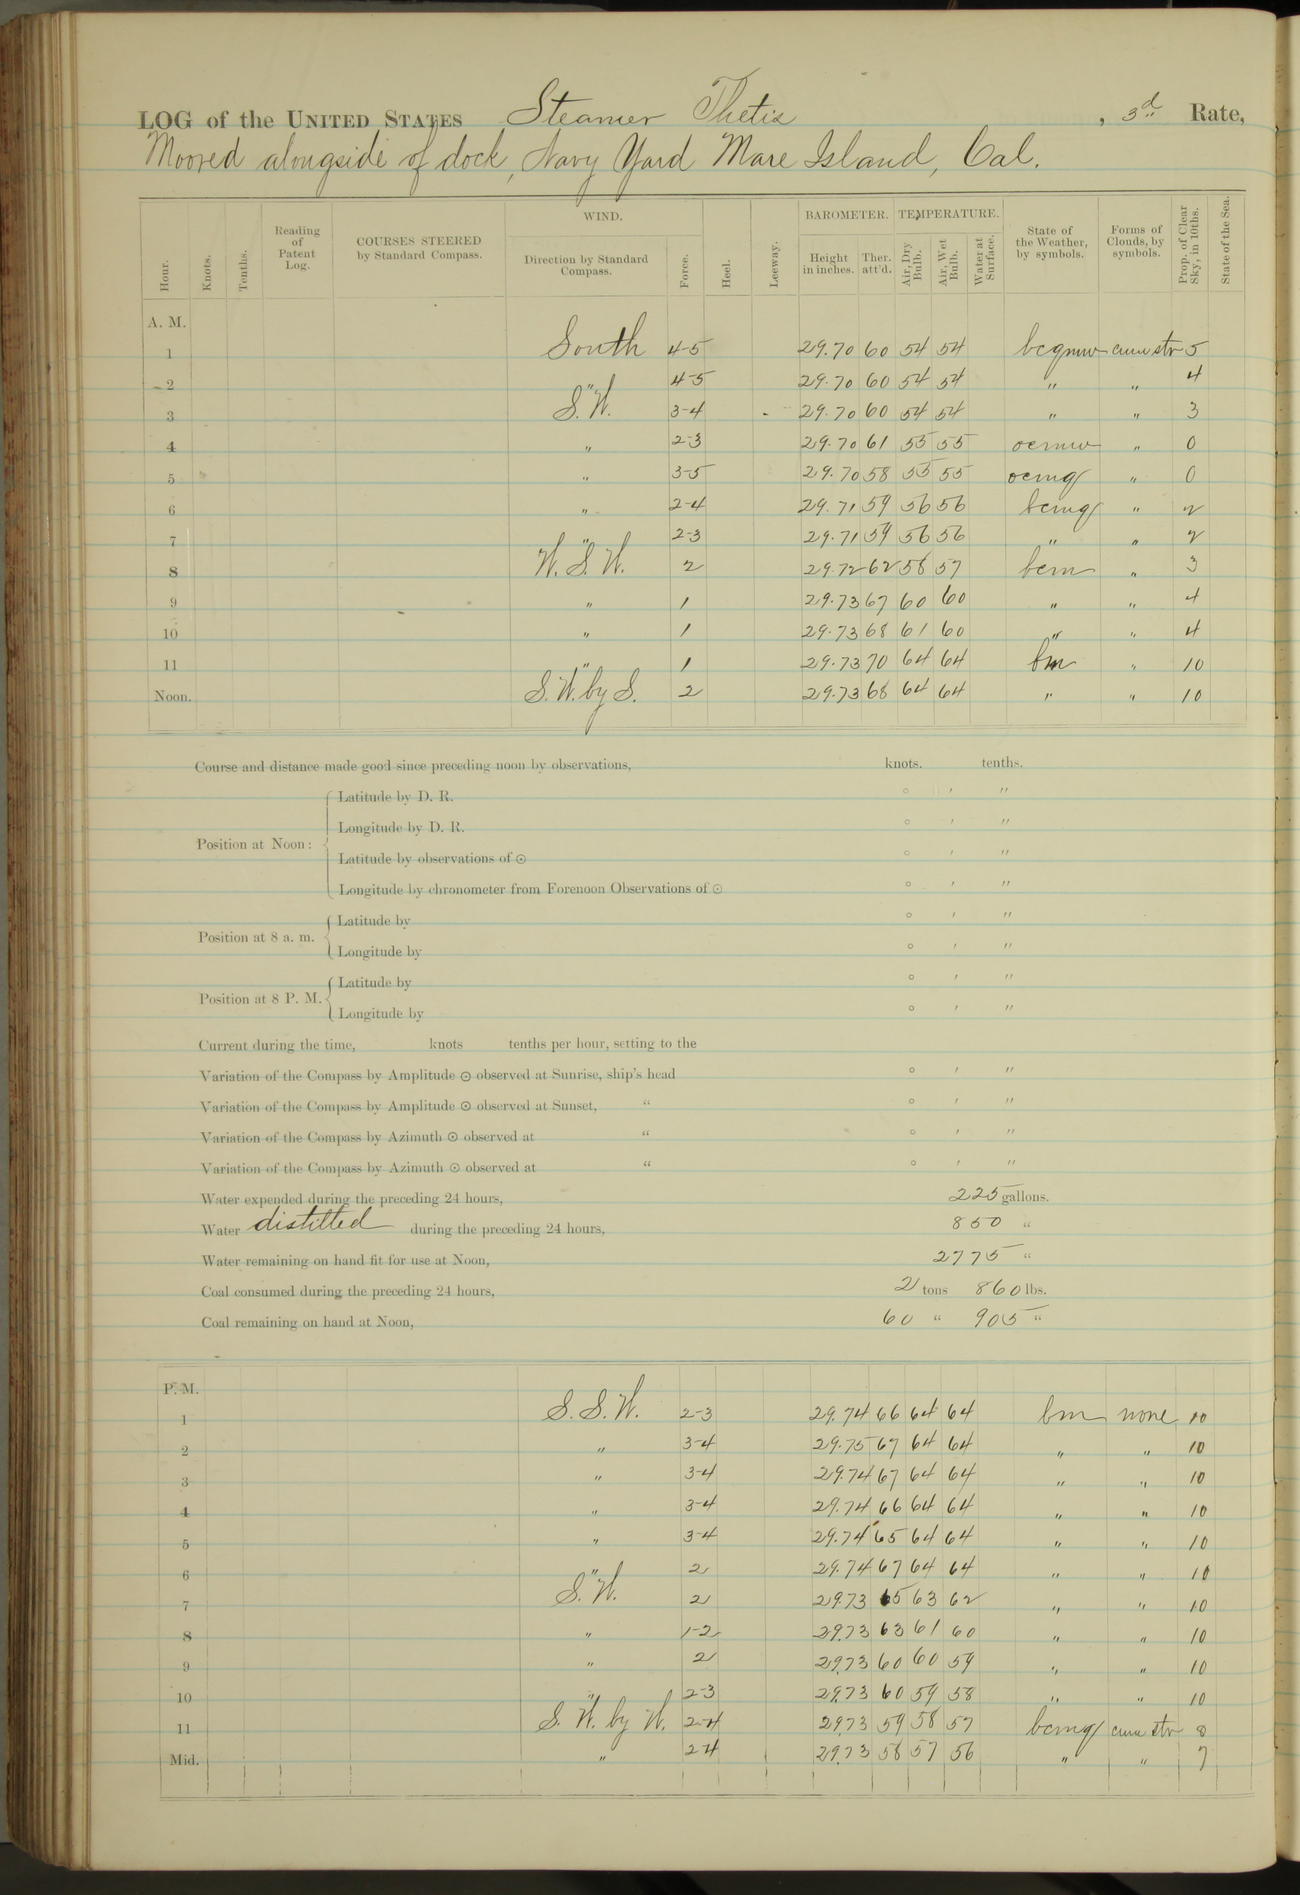 LOG of the UNITED STATES Steamer Thetis, 3d Rate,
Moored alongside of dock, Navy Yard Mare Island, Cal.
WIND. BAROMETER. TEMPERATURE.
Hour. Knots. Tenths. Reading of Patent Log. COURSES STEERED by Standard Compass. Direction by Standard Compass. Force. Heel. Leeway. Height in inches. Ther. att'd. Air, Dry Bulb. Air, Wet Bulb. Water at Surface. State of the Weather, by symbols. Forms of Clouds, by symbols. Prop. of Clear Sky, in 10ths. State of the Sea.
A. M.
1 South 4-5 29.70 60 54 54 bcqmw cum str 5
2 " 4-5 29.70 60 54 54 " " 4
3 S.W. 3-4 29.70 60 54 54 " " 3
4 " 2-3 29.70 61 55 55 ocmw " 0
5 " 3-5 29.70 58 55 55 ocmq " 0
6 " 2-4 29.71 59 56 56 bcmq " 2
7 " 2-3 29.71 59 56 56 " " 2
8 W.S.W. 2 29.72 62 58 57 bcm " 3
9 " 1 29.73 67 60 60 " " 4
10 " 1 29.73 68 61 60 " " 4
11 " 1 29.73 70 64 64 bm " 10
Noon. S.W. by S. 2 29.73 68 64 64 " " 10
Course and distance made good since preceding noon by observations, knots. tenths.
Latitude by D. R. ° ′ ″
Longitude by D. R. ° ′ ″
Position at Noon:
Latitude by observations of ⊙ ° ′ ″
Longitude by chronometer from Forenoon Observations of ⊙ ° ′ ″
Latitude by ° ′ ″
Position at 8 a. m.
Longitude by ° ′ ″
Latitude by ° ′ ″
Position at 8 P. M.
Longitude by ° ′ ″
Current during the time, knots tenths per hour, setting to the
Variation of the Compass by Amplitude ⊙ observed at Sunrise, ship's head ° ′ ″
Variation of the Compass by Amplitude ⊙ observed at Sunset, " ° ′ ″
Variation of the Compass by Azimuth ⊙ observed at " ° ′ ″
Variation of the Compass by Azimuth ⊙ observed at " ° ′ ″
Water expended during the preceding 24 hours, 225 gallons.
Water distilled during the preceding 24 hours, 850 "
Water remaining on hand fit for use at Noon, 2775 "
Coal consumed during the preceding 24 hours, 2 tons 860 lbs.
Coal remaining on hand at Noon, 60 " 905 "
P. M.
1 S.S.W. 2-3 29.74 66 64 64 bm none 10
2 " 3-4 29.75 67 64 64 " " 10
3 " 3-4 29.74 67 64 64 " " 10
4 " 3-4 29.74 66 64 64 " " 10
5 " 3-4 29.74 65 64 64 " " 10
6 " 2 29.74 67 64 64 " " 10
7 S.W. 2 29.73 65 63 62 " " 10
8 " 1-2 29.73 63 61 60 " " 10
9 " 2 29.73 60 60 59 " " 10
10 " 2-3 29.73 60 59 58 " " 10
11 S.W. by W. 2-4 29.73 59 58 57 bcmq cum str 8
Mid. " 2-4 29.73 58 57 56 " " 7